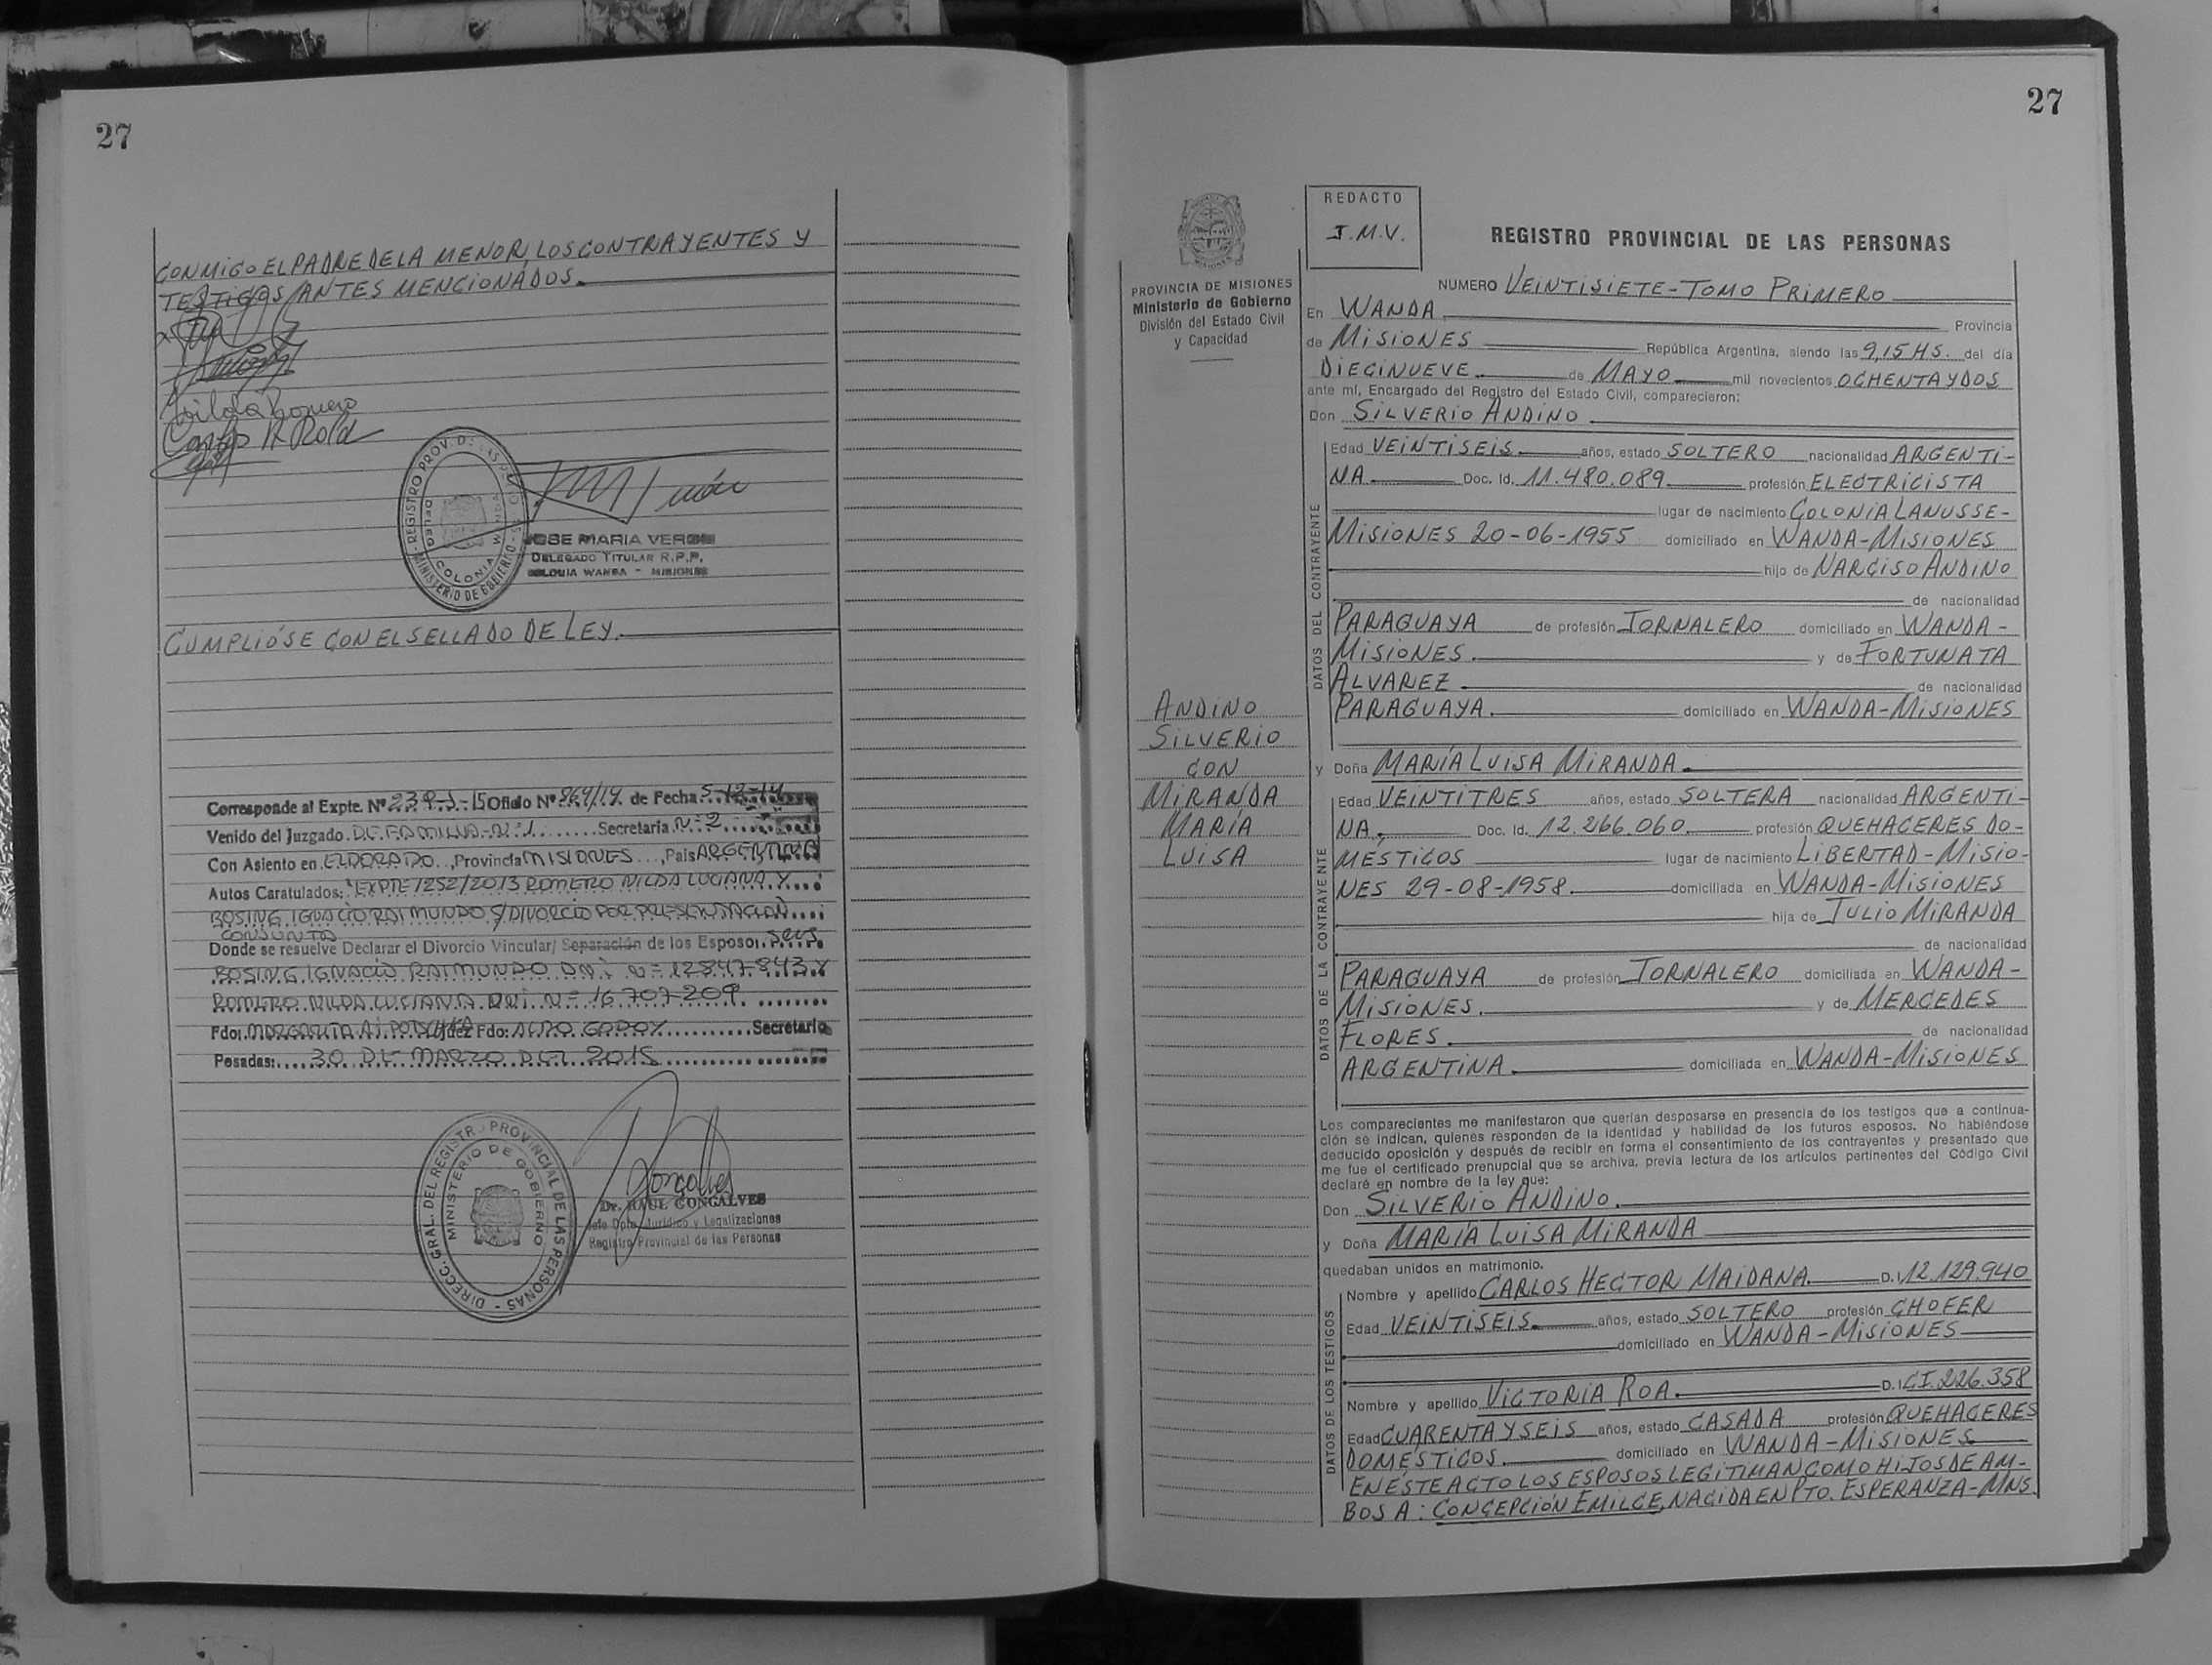 27
CONMIGO EL PADRE DE LA MENOR, LOS CONTRAYENTES Y
TESTIGOS ANTES MENCIONADOS.
Nilda Romero
Carlos A Rold
REGISTRO PROV. DE LAS
MINISTERIO DE GOBIERNO
COLONIA WANDA
JOSE MARIA VERON
DELEGADO TITULAR R.P.P.
COLONIA WANDA - MISIONES
CUMPLIÓSE CON EL SELLADO DE LEY.
Corresponde al Expte. Nº 239-J-15 Oficio Nº 869/14 de Fecha 5-12-14
Venido del Juzgado DE FAMILIA-Nº1 Secretaría Nº2
Con Asiento en ELDORADO, Provincia MISIONES, País ARGENTINA
Autos Caratulados: "EXPTE 1252/2013 ROMERO NILDA LUCIANA Y
BOSING IGNACIO RAIMUNDO S/DIVORCIO POR PRESENTACIÓN
CONJUNTA
Donde se resuelve Declarar el Divorcio Vincular/ Separación de los Esposos Sres.
BOSING IGNACIO RAIMUNDO DNI Nº 12847843 Y
ROMERO NILDA LUCIANA DNI Nº 16 707 209
Fdo: MARGARITA A. POTSCHKA Juez Fdo: ALDO GODOY Secretario
Posadas: 30 DE MARZO DEL 2015
DIRECC. GRAL. DEL REGISTRO PROVINCIAL DE LAS PERSONAS
MINISTERIO DE GOBIERNO
Goncalves
Dr. RAUL GONCALVES
Jefe Dpto. Jurídico y Legalizaciones
Registro Provincial de las Personas
27
PROVINCIA DE MISIONES
Ministerio de Gobierno
División del Estado Civil
y Capacidad
REDACTO
J.M.V.
REGISTRO PROVINCIAL DE LAS PERSONAS
NUMERO VEINTISIETE-TOMO PRIMERO
En WANDA Provincia
de MISIONES República Argentina, siendo las 9,15 HS. del día
DIECINUEVE de MAYO mil novecientos OCHENTA Y DOS
ante mí, Encargado del Registro del Estado Civil, comparecieron:
Don SILVERIO ANDINO
DATOS DEL CONTRAYENTE
Edad VEINTISEIS años, estado SOLTERO nacionalidad ARGENTI-
NA. Doc. Id. 11.480.089 profesión ELECTRICISTA
lugar de nacimiento COLONIA LANUSSE-
MISIONES 20-06-1955 domiciliado en WANDA-MISIONES
hijo de NARCISO ANDINO
de nacionalidad
PARAGUAYA de profesión JORNALERO domiciliado en WANDA-
MISIONES. y de FORTUNATA
ALVAREZ de nacionalidad
PARAGUAYA. domiciliado en WANDA-MISIONES
ANDINO
SILVERIO
CON
MIRANDA
MARÍA
LUISA
y Doña MARÍA LUISA MIRANDA.
DATOS DE LA CONTRAYENTE
Edad VEINTITRES años, estado SOLTERA nacionalidad ARGENTI-
NA. Doc. Id. 12.266.060 profesión QUEHACERES DO-
MÉSTICOS lugar de nacimiento LIBERTAD-MISIO-
NES 29-08-1958. domiciliada en WANDA-MISIONES
hija de JULIO MIRANDA
de nacionalidad
PARAGUAYA de profesión JORNALERO domiciliada en WANDA-
MISIONES. y de MERCEDES
FLORES. de nacionalidad
ARGENTINA. domiciliada en WANDA-MISIONES
Los comparecientes me manifestaron que querían desposarse en presencia de los testigos que a continua-
ción se indican, quienes responden de la identidad y habilidad de los futuros esposos. No habiéndose
deducido oposición y después de recibir en forma el consentimiento de los contrayentes y presentado que
me fue el certificado prenupcial que se archiva, previa lectura de los artículos pertinentes del Código Civil
declaré en nombre de la ley que:
Don SILVERIO ANDINO.
y Doña MARÍA LUISA MIRANDA
quedaban unidos en matrimonio.
DATOS DE LOS TESTIGOS
Nombre y apellido CARLOS HECTOR MAIDANA. D.I. 12.129.940
Edad VEINTISEIS. años, estado SOLTERO profesión CHOFER
domiciliado en WANDA-MISIONES
Nombre y apellido VICTORIA ROA. D.I. CI.226.358
Edad CUARENTA Y SEIS años, estado CASADA profesión QUEHACERES
DOMÉSTICOS. domiciliado en WANDA-MISIONES
EN ÉSTE ACTO LOS ESPOSOS LEGITIMAN COMO HIJOS DE AM-
BOS A: CONCEPCIÓN EMILCE, NACIDA EN PTO. ESPERANZA-MNS.